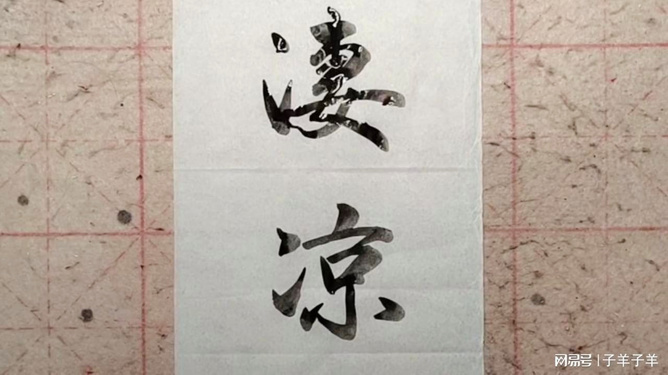 凄
凉
网易号 | 子羊子羊